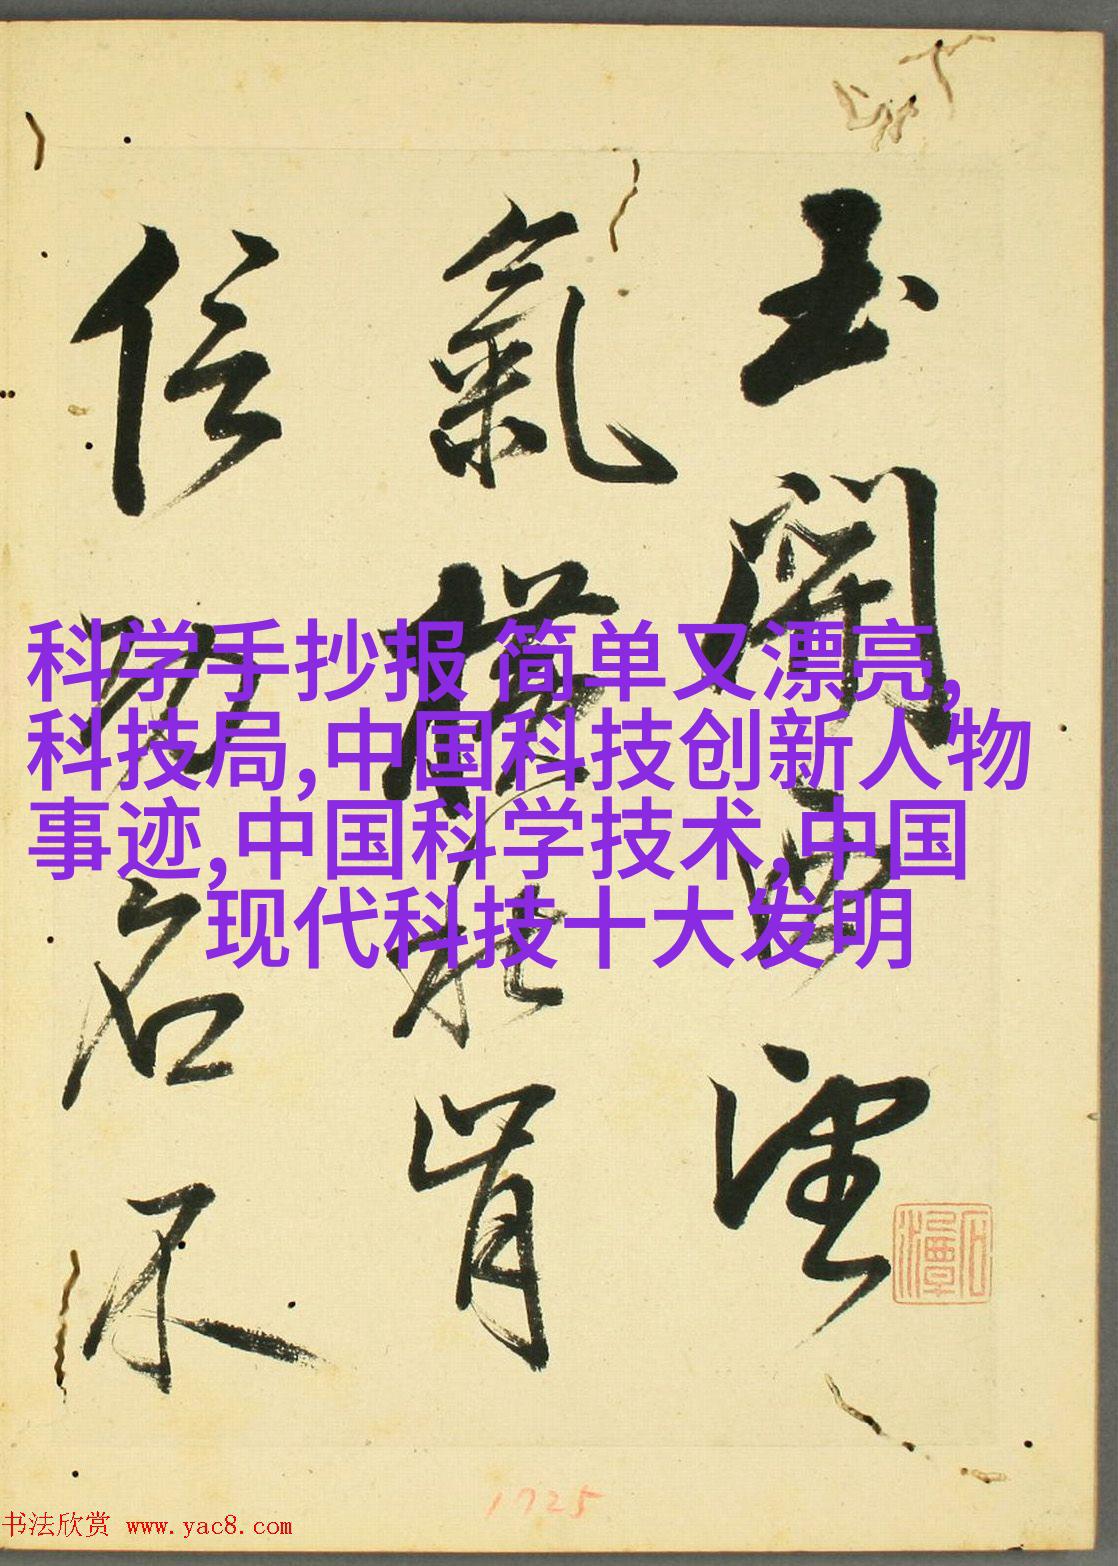 玉關西望
氣橫秋肯
信功名不
科学手抄报 简单又漂亮,
科技局,中国科技创新人物
事迹,中国科学技术,中国
现代科技十大发明
1725
书法欣赏 www.yac8.com